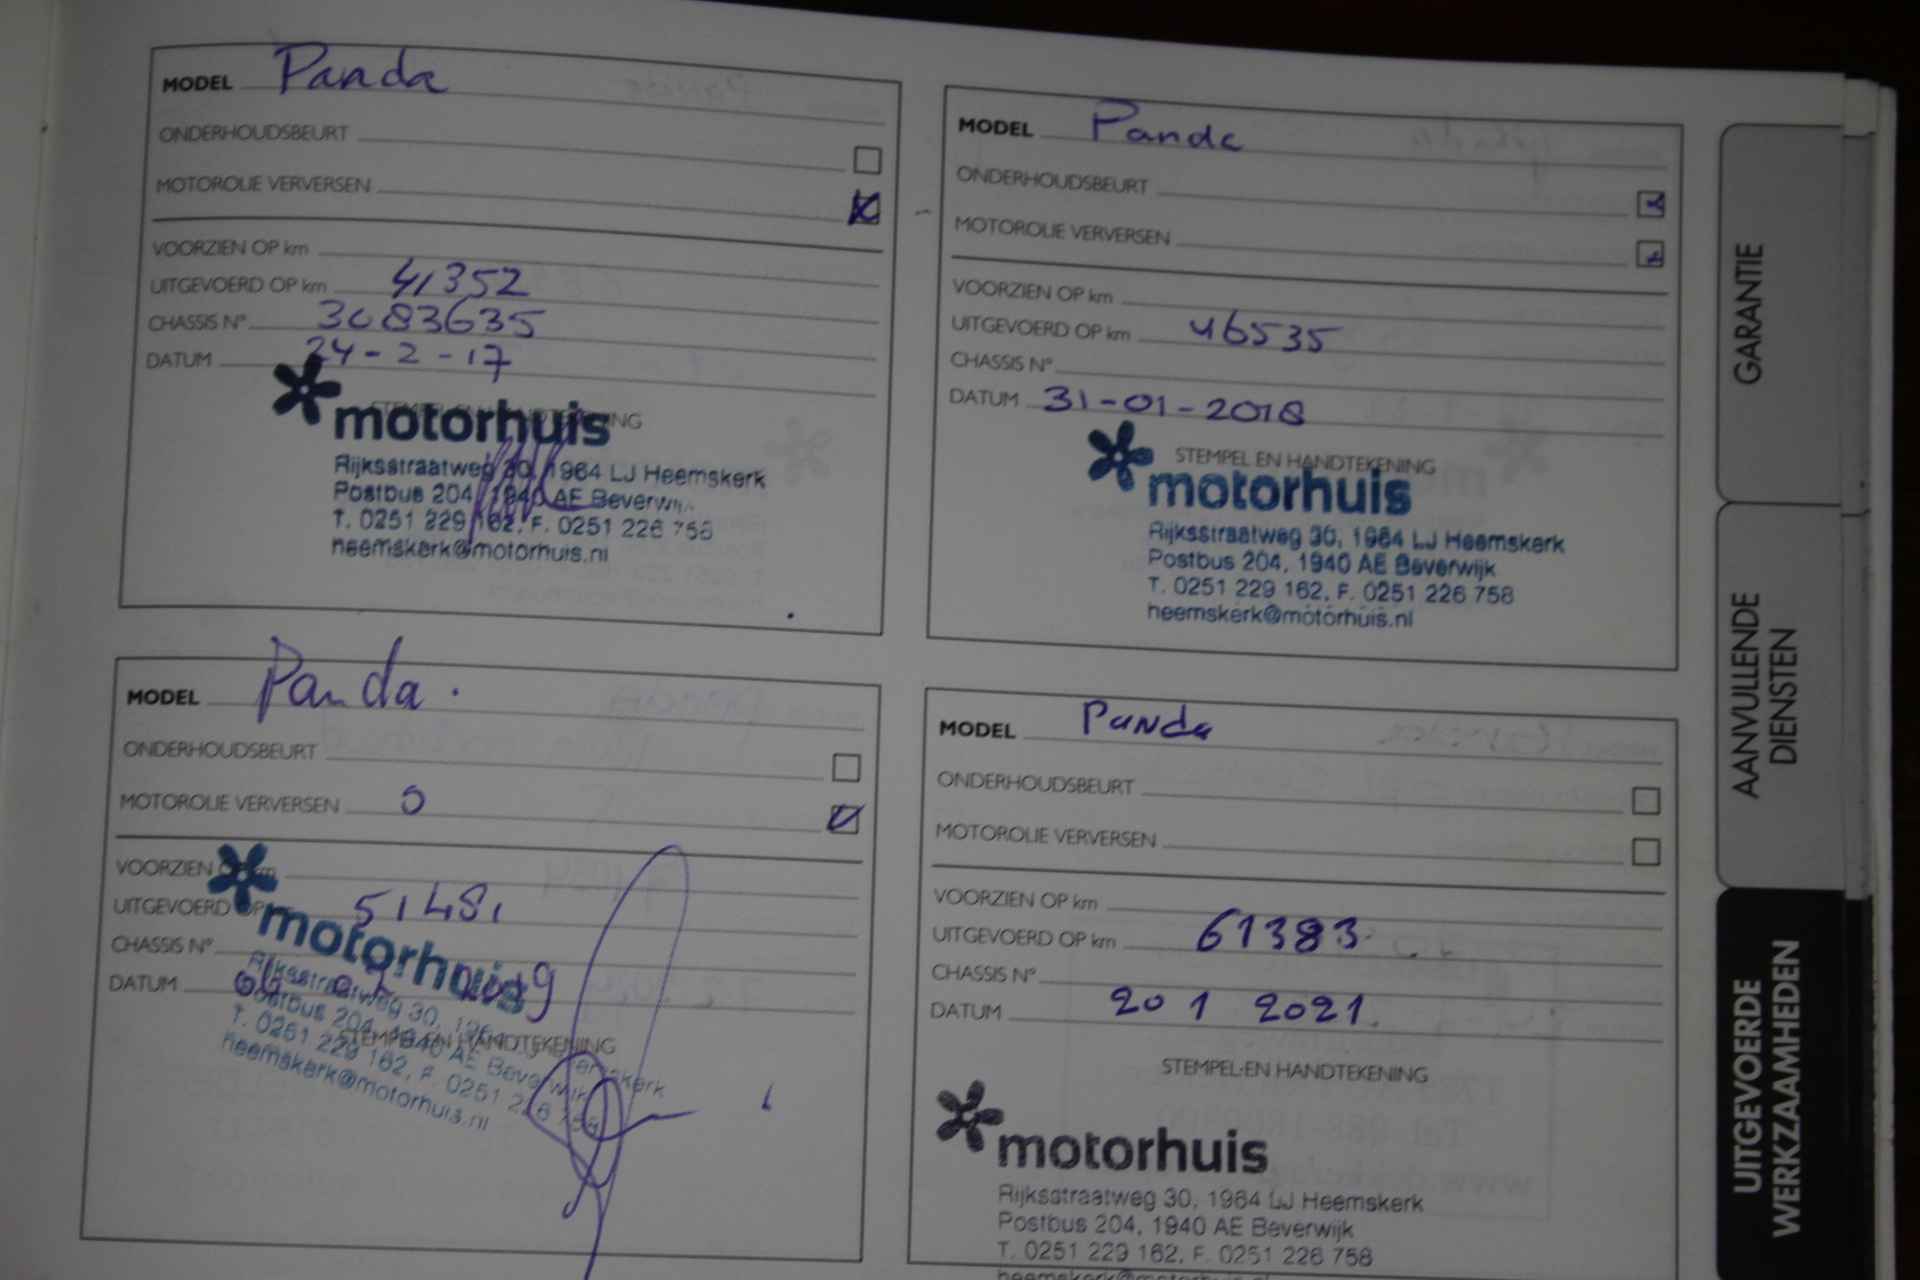 MODEL Panda
ONDERHOUDSBEURT
MOTOROLIE VERVERSEN
VOORZIEN OP km
UITGEVOERD OP km 41352
CHASSIS N° 3083635
DATUM 24-2-17
STEMPEL EN HANDTEKENING
motorhuis
Rijksstraatweg 30, 1964 LJ Heemskerk
Postbus 204, 1940 AE Beverwijk
T. 0251 229 162, F. 0251 226 758
heemskerk@motorhuis.nl
MODEL Panda
ONDERHOUDSBEURT
MOTOROLIE VERVERSEN
VOORZIEN OP km
UITGEVOERD OP km 46535
CHASSIS N°
DATUM 31-01-2018
STEMPEL EN HANDTEKENING
motorhuis
Rijksstraatweg 30, 1964 LJ Heemskerk
Postbus 204, 1940 AE Beverwijk
T. 0251 229 162, F. 0251 226 758
heemskerk@motorhuis.nl
MODEL Panda.
ONDERHOUDSBEURT
MOTOROLIE VERVERSEN 0
VOORZIEN OP km
UITGEVOERD OP 51481
CHASSIS N°
DATUM 2019
motorhuis
Rijksstraatweg 30, 1964 LJ Heemskerk
Postbus 204, 1940 AE Beverwijk
T. 0251 229 162, F. 0251 226 758
heemskerk@motorhuis.nl
STEMPEL EN HANDTEKENING
MODEL Panda
ONDERHOUDSBEURT
MOTOROLIE VERVERSEN
VOORZIEN OP km
UITGEVOERD OP km 61383
CHASSIS N°
DATUM 20 1 2021
STEMPEL EN HANDTEKENING
motorhuis
Rijksstraatweg 30, 1964 LJ Heemskerk
Postbus 204, 1940 AE Beverwijk
T. 0251 229 162, F. 0251 226 758
heemskerk@motorhuis.nl
GARANTIE
AANVULLENDE
DIENSTEN
UITGEVOERDE
WERKZAAMHEDEN